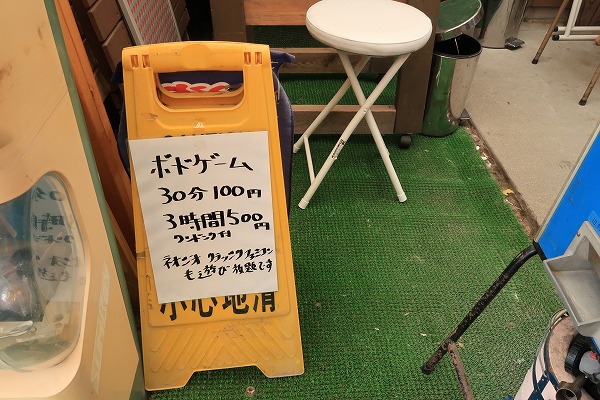 ボドゲーム
30分100円
3時間500円
ワンドリンク付
ネオジオ クラシックファミコン
も遊び放題です
小心地滑